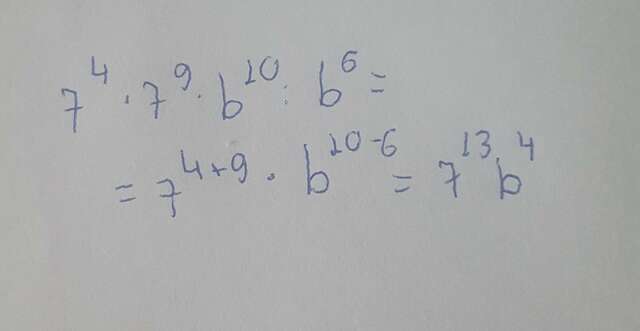 7⁴ · 7⁹ · b¹⁰ : b⁶ =
= 7⁴⁺⁹ · b¹⁰⁻⁶ = 7¹³ b⁴